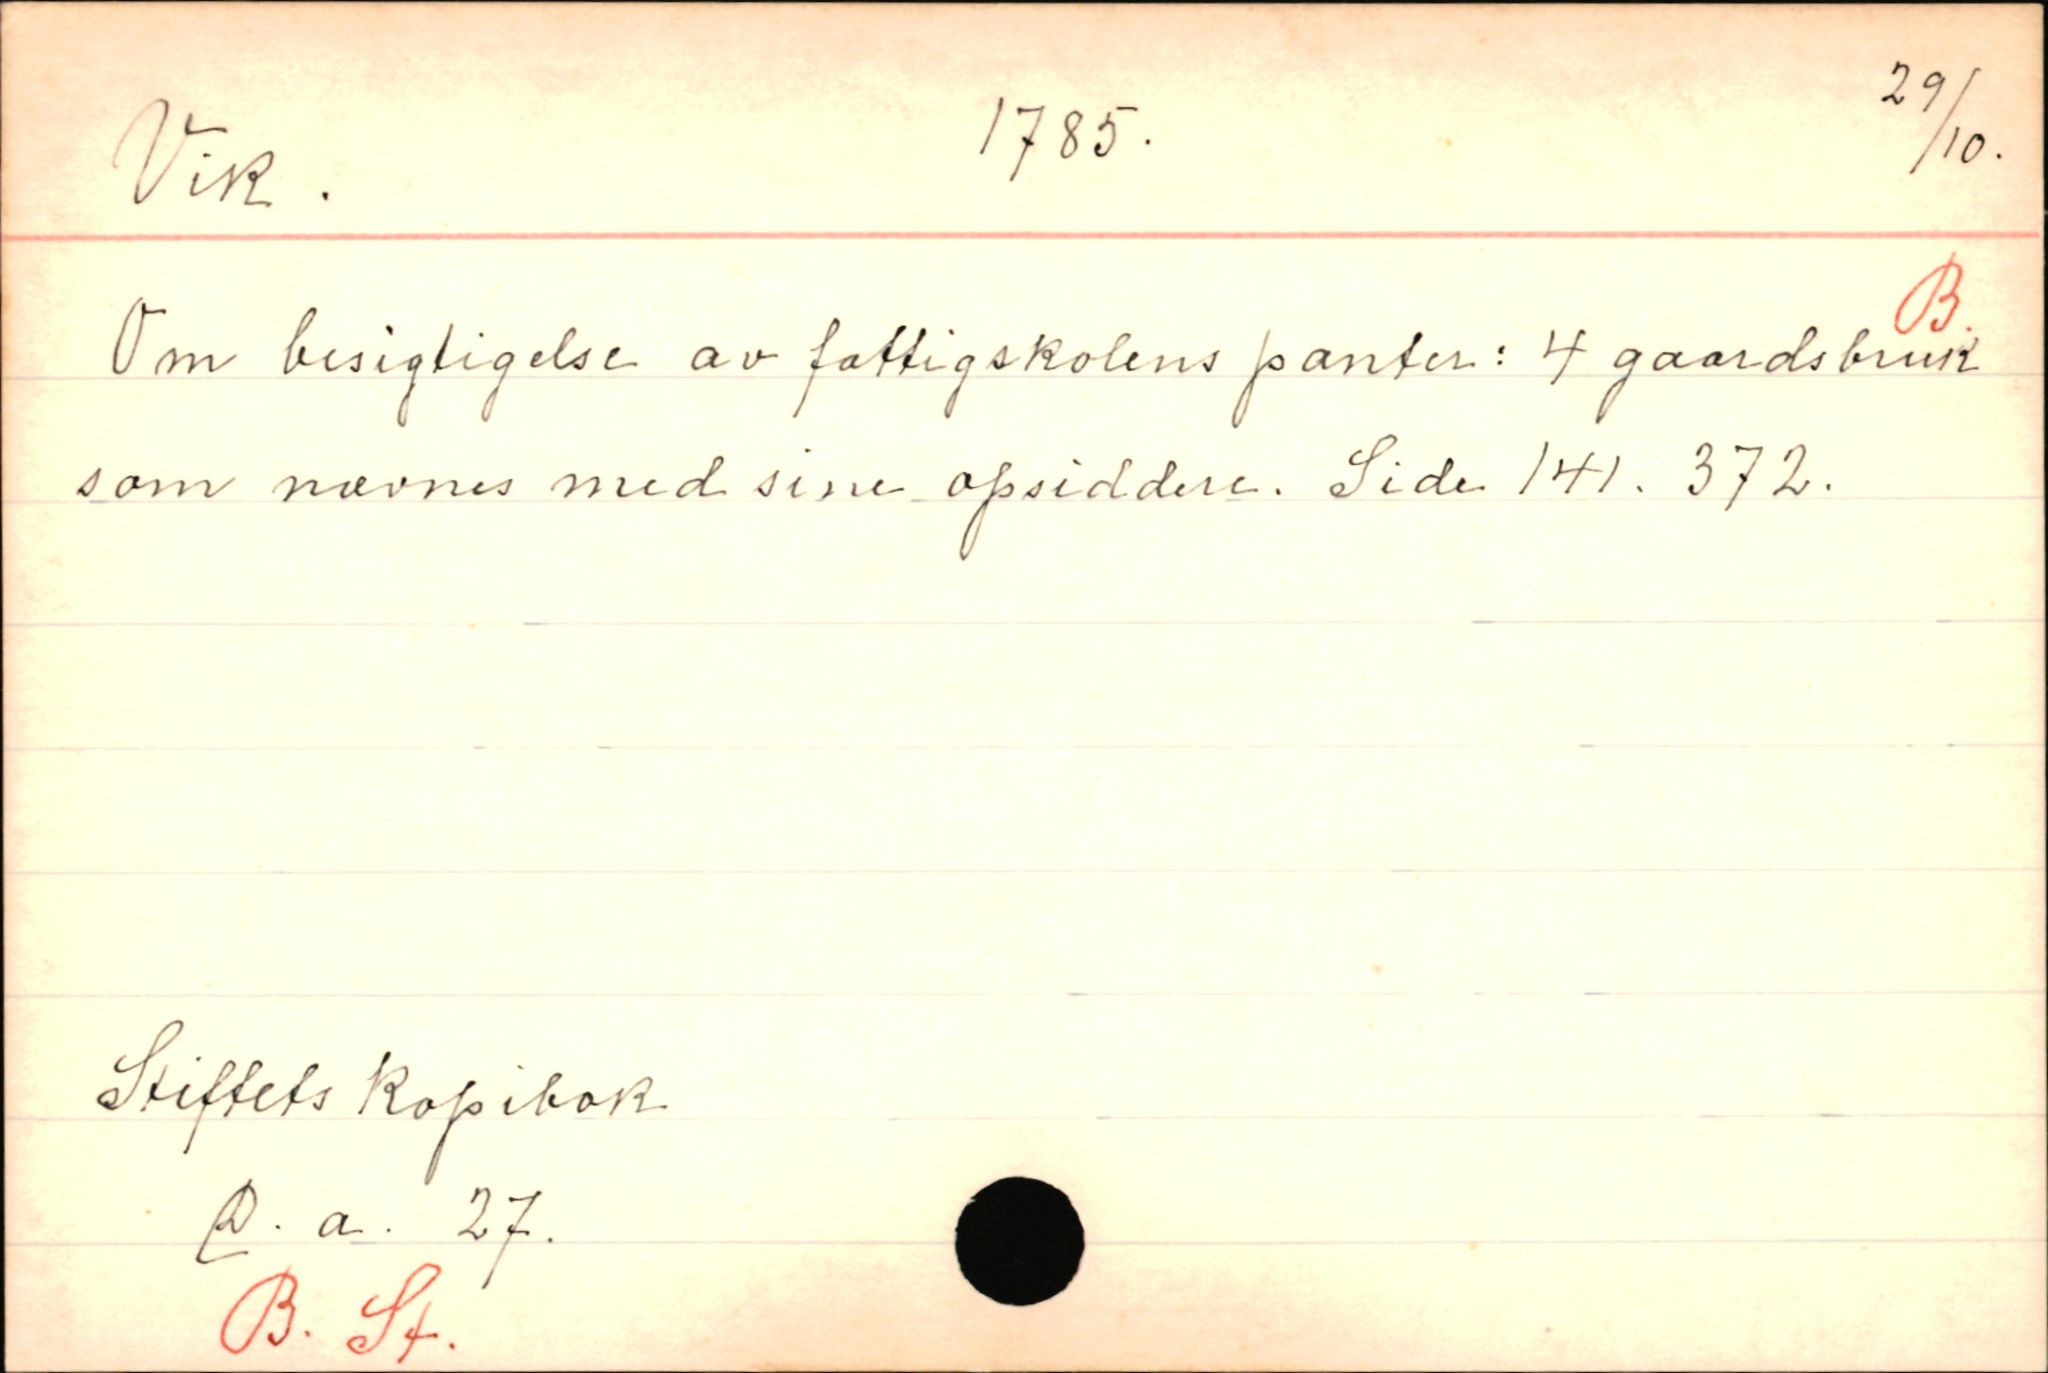 Vik. 1785. 29/10.
B.
Om besigtigelse av fattigskolens panter: 4 gaardsbruk
som nævnes med sine opsiddere. Side 141. 372.
Stiftets kopibok
a. 27.
B. St.